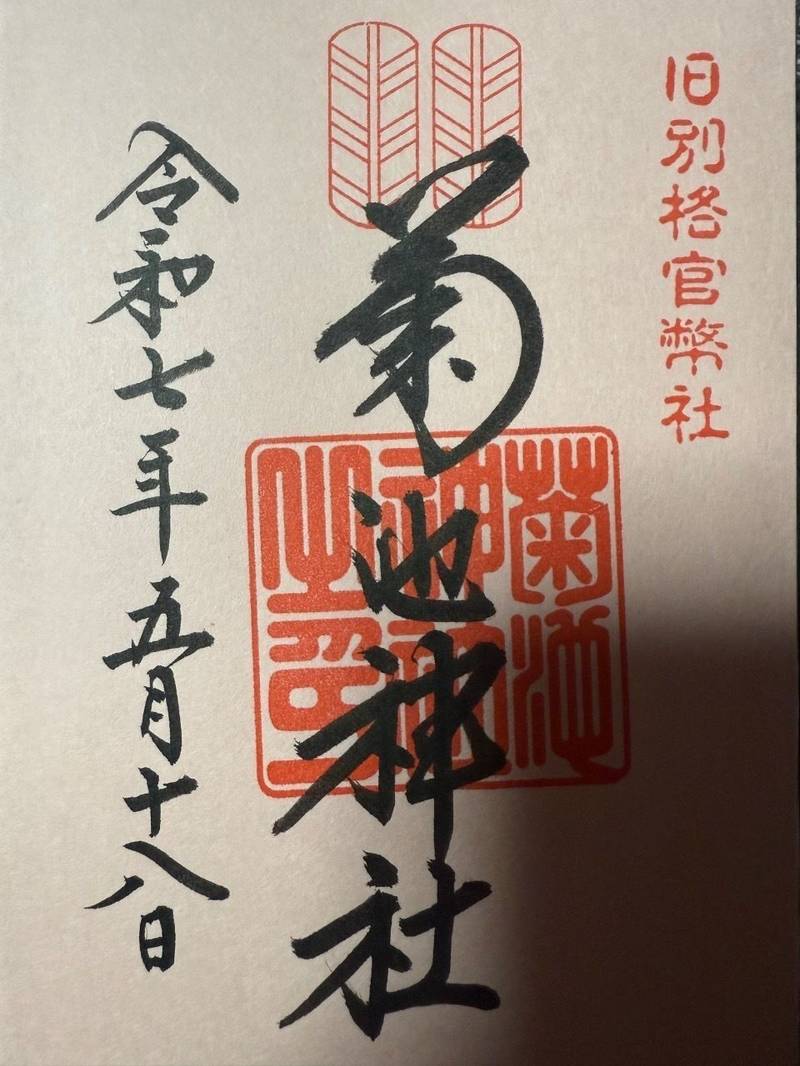 旧別格官幣社
菊池神社
菊池
神社
之印
令和七年五月十八日